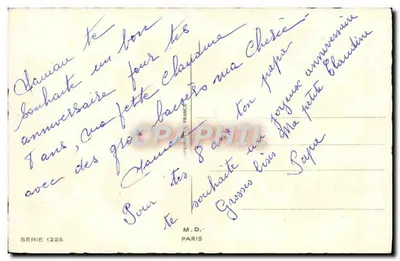 Maman te
souhaite un bon
anniversaire pour tes
8 ans, ma petite Claudine
avec des gros baisers ma Chérie
Maman
Pour tes 8 ans ton papa
te souhaite un joyeux anniversaire
Grosses bises Ma petite Claudine
Papa
CARTHAPHIL
FRANCE
SÉRIE 1225
M.D.
PARIS